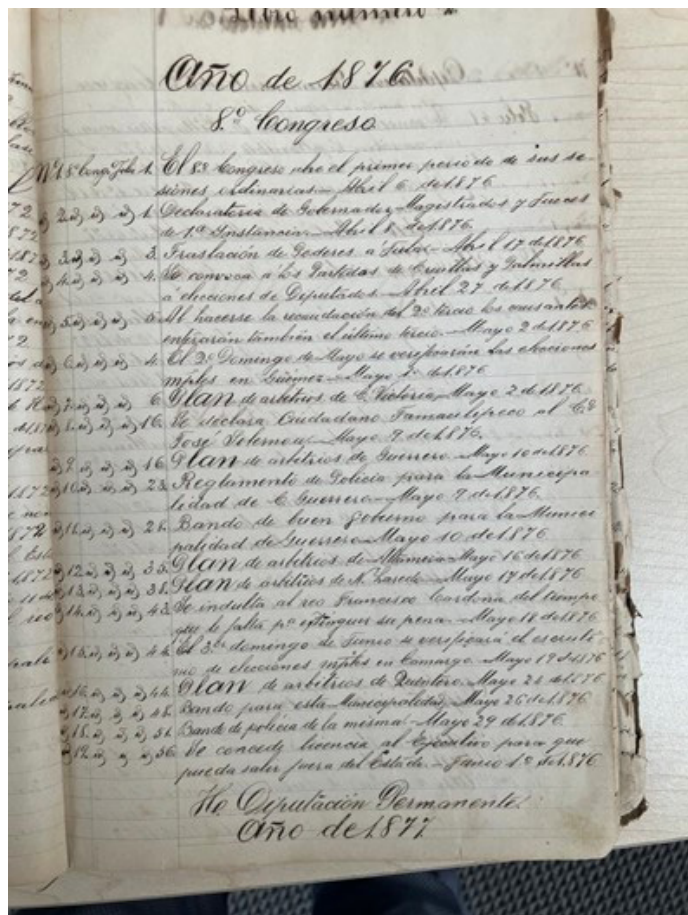 Libro numero 2
Año de 1876
8.º Congreso
Nº 1. 8º Congº Foja 1. El 8º Congreso abre el primer periodo de sus se-
siones ordinarias.- Abril 6 de 1876
" 2. " " " 1. Declaratoria de Gobernador, Magistrados y Jueces
de 1.ª Instancia.- Abril 8 de 1876.
" 3. " " " 3. Traslación de Poderes a Tula.- Abril 17 de 1876
" 4. " " " 4. Se convoca a los Partidos de Cruillas y Palmillas
á elecciones de Diputados.- Abril 27 de 1876.
" 5. " " " Al hacerse la recaudación del 2º tercio los causantes
enterarán también el último tercio.- Mayo 2 de 1876
" 6. " " " 4. El 2º Domingo de Mayo se verificarán las elecciones
mples en Güemez.- Mayo de 1876
" 7. " " " 6. Plan de arbitrios de C. Victoria.- Mayo 2 de 1876.
" 8. " " " 16. Se declara Ciudadano Tamaulipeco al C.º
José Mayo 9 de 1876.
" 9. " " " 16. Plan de arbitrios de Guerrero.- Mayo 10 de 1876
" 10. " " " 23. Reglamento de Policia para la Municipa-
lidad de C. Guerrero.- Mayo 9 de 1876
" 11. " " " 28. Bando de buen gobierno para la Munici
palidad de Guerrero.- Mayo 10 de 1876.
" 12. " " " 35. Plan de arbitrios de Altamira.- Mayo 16 de 1876
" 13. " " " 38. Plan de arbitrios de N. Laredo.- Mayo 17 de 1876
" 14. " " " 43. Se indulta al reo Francisco Cardona del tiempo
que le falta pª extinguir su pena.- Mayo 18 de 1876
" 15. " " " 44. El 3.er domingo de Junio se verificará el escruti-
nio de elecciones mples en Camargo.- Mayo 19 de 1876
" 16. " " " 44. Plan de arbitrios de Quintero.- Mayo 24 de 1876
" 17. " " " 48. Bando para esta Municipalidad.- Mayo 26 de 1876
" 18. " " " 51. Bando de policia de la misma.- Mayo 29 de 1876
" 19. " " " 56. Se concede licencia al Ejecutivo para que
pueda salir fuera del Estado.- Junio 1º de 1876
Diputación Permanente.
Año de 1877